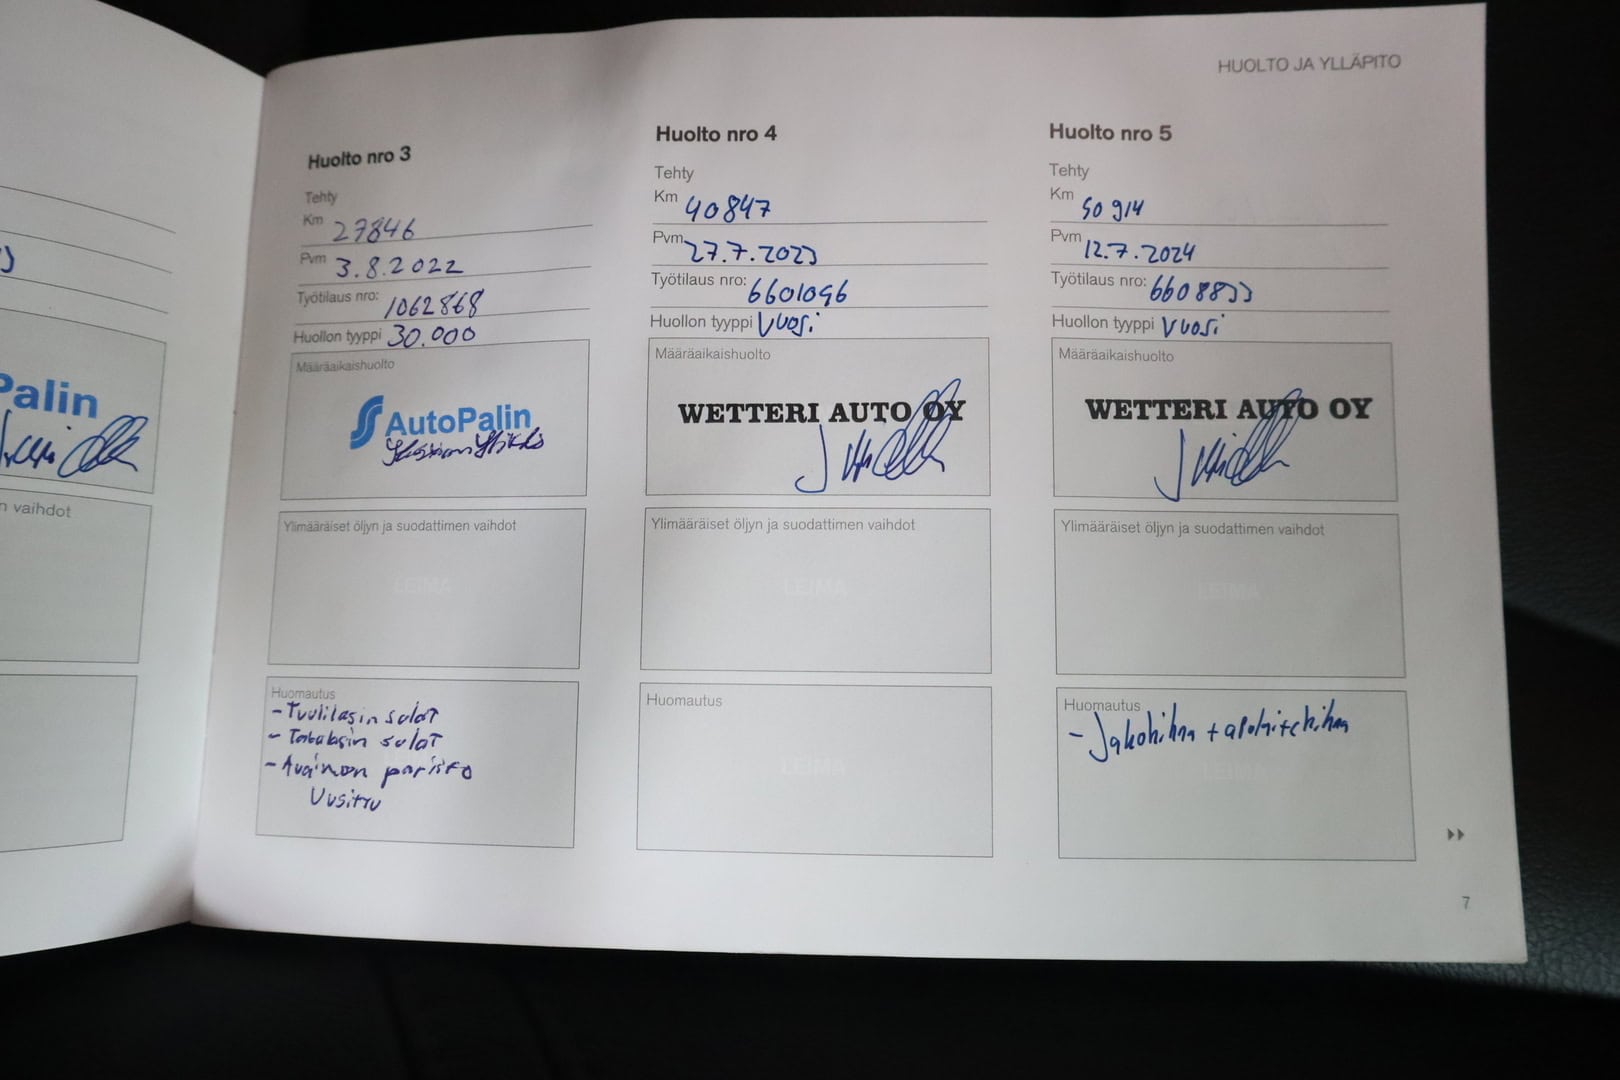 HUOLTO JA YLLÄPITO
Palin
n vaihdot
Huolto nro 3
Tehty
Km 27846
Pvm 3.8.2022
Työtilaus nro: 1062868
Huollon tyyppi 30.000
Määräaikaishuolto
AutoPalin
Ylimääräiset öljyn ja suodattimen vaihdot
LEIMA
Huomautus
- Tuulilasin sulat
- Takalasin sulat
- Avaimen paristo
Uusittu
Huolto nro 4
Tehty
Km 40847
Pvm 27.7.2023
Työtilaus nro: 6601096
Huollon tyyppi Vuosi
Määräaikaishuolto
WETTERI AUTO OY
Ylimääräiset öljyn ja suodattimen vaihdot
LEIMA
Huomautus
LEIMA
Huolto nro 5
Tehty
Km 50914
Pvm 12.7.2024
Työtilaus nro: 6608833
Huollon tyyppi Vuosi
Määräaikaishuolto
WETTERI AUTO OY
Ylimääräiset öljyn ja suodattimen vaihdot
LEIMA
Huomautus
- Jakohihna + apulaitehihna
LEIMA
7